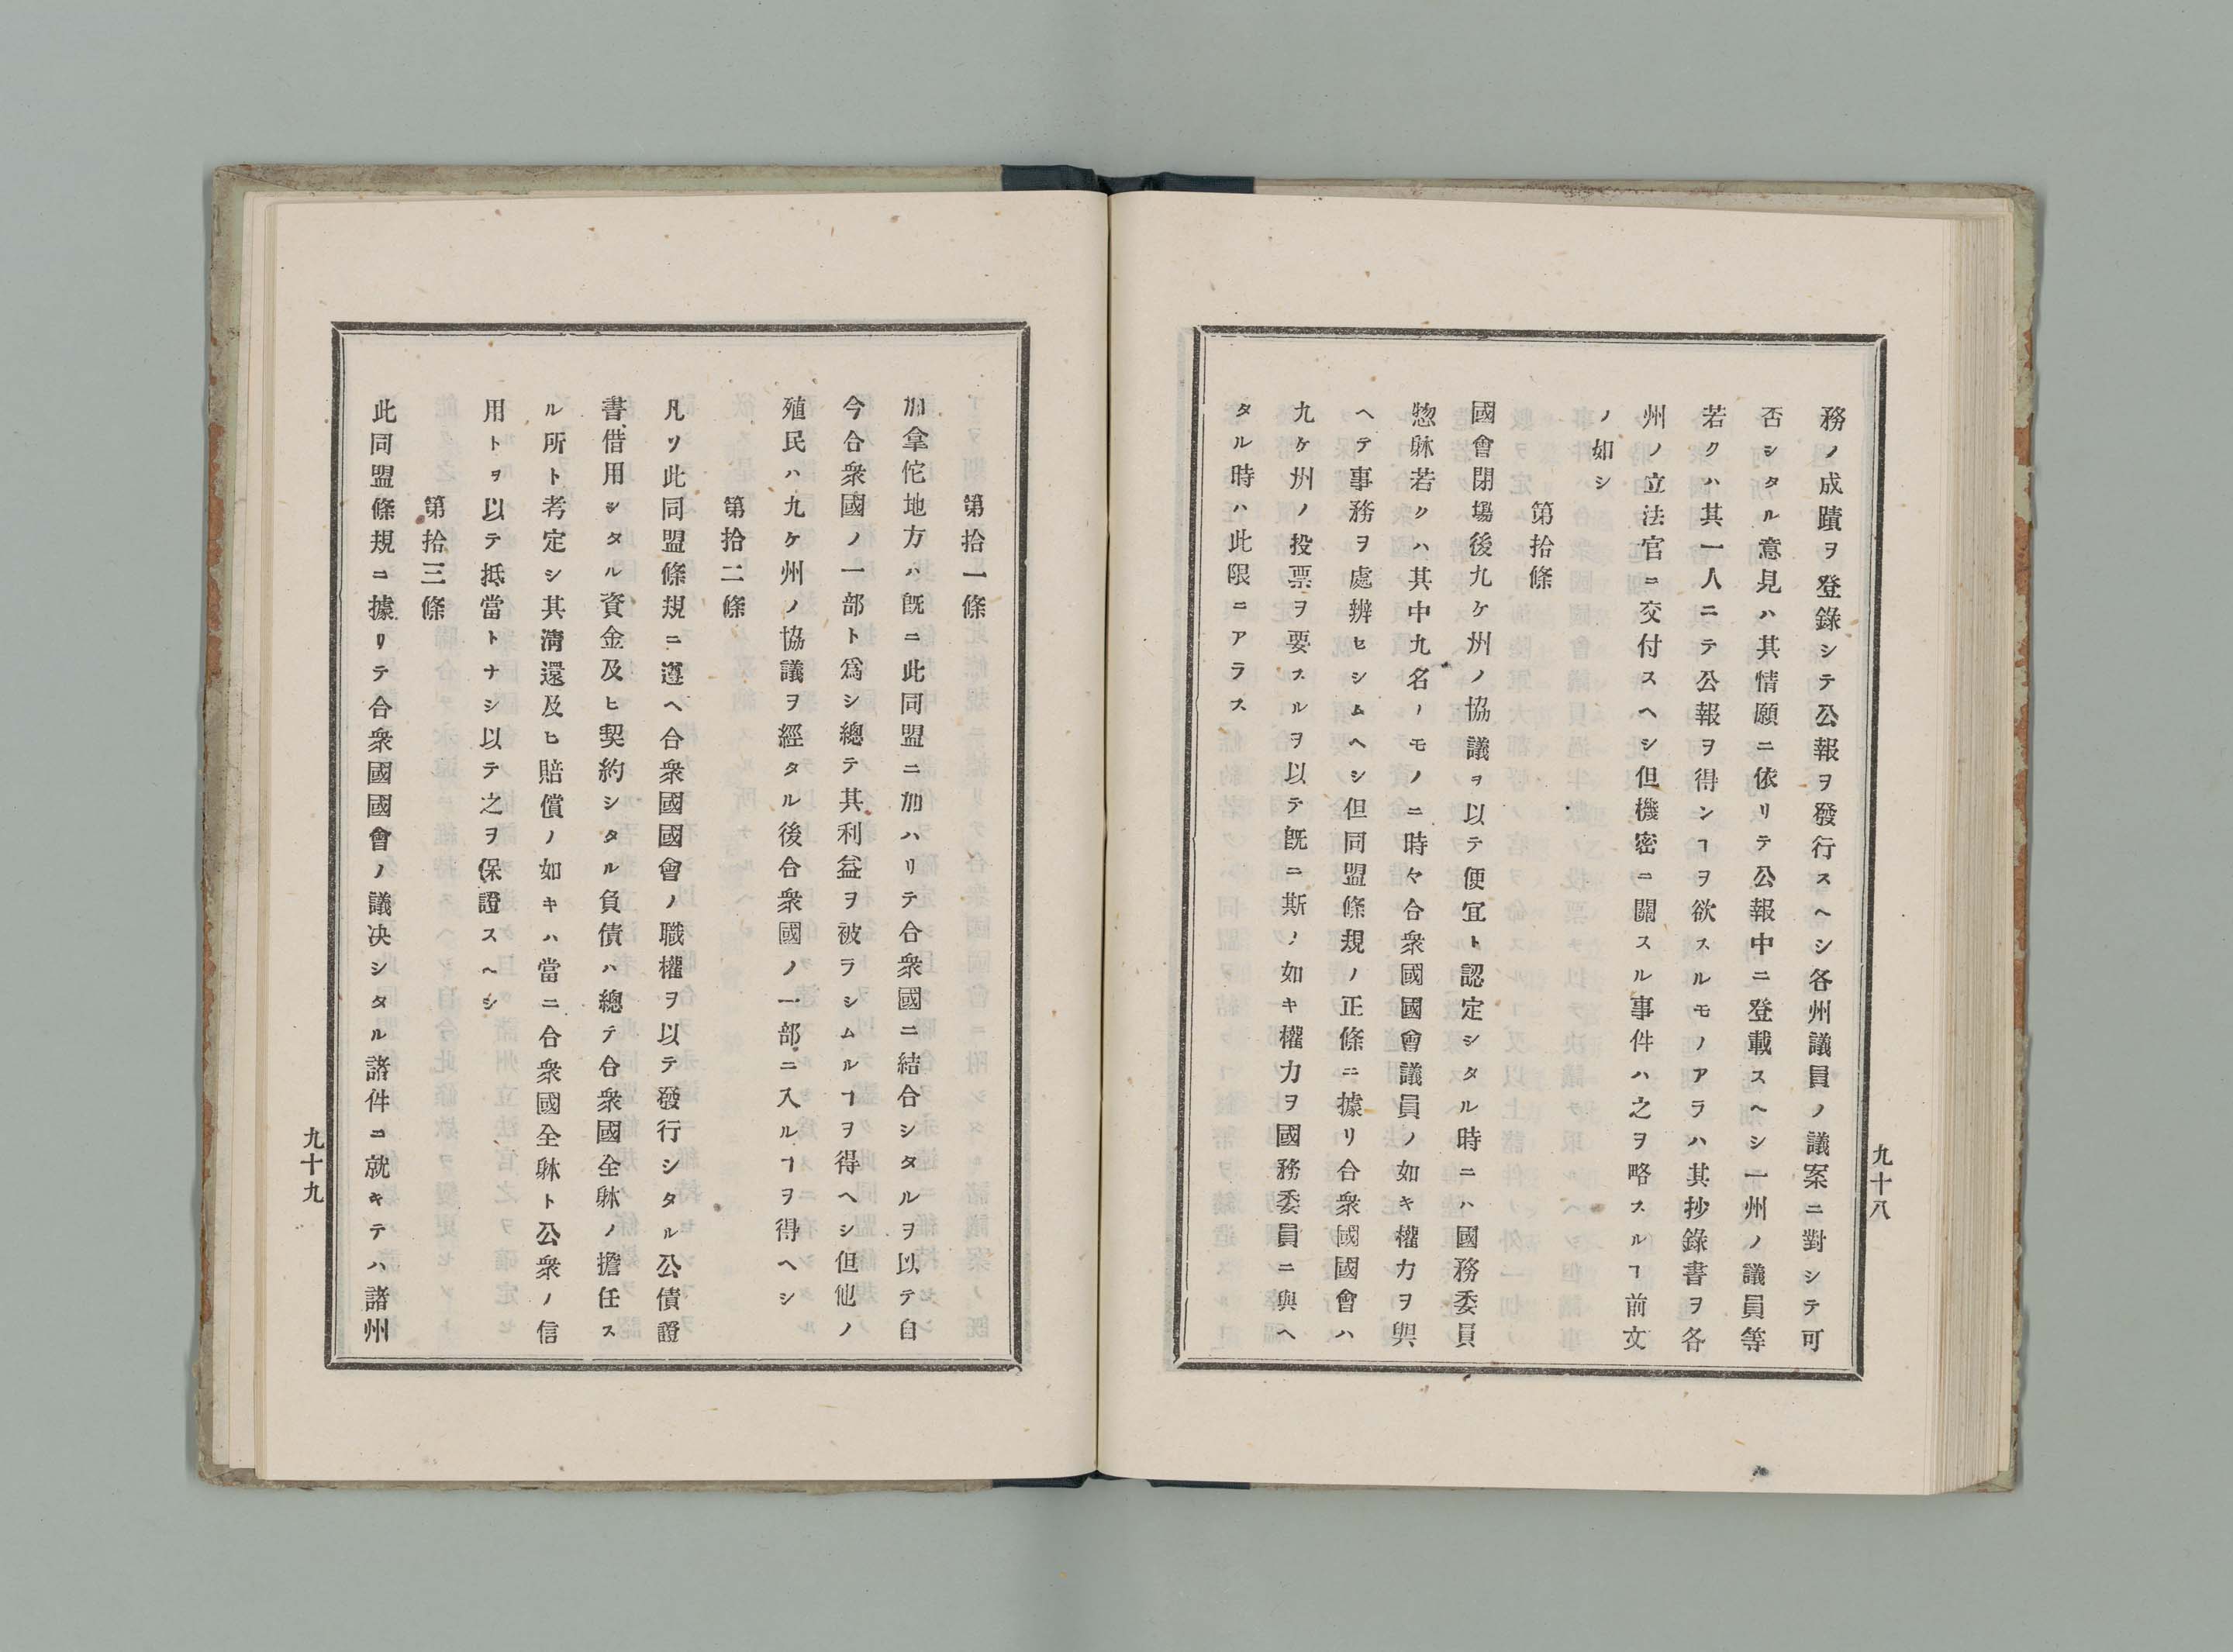 務ノ成蹟ヲ登錄シテ公報ヲ發行スヘシ各州議員ノ議案ニ對シテ可
否シタル意見ハ其情願ニ依リテ公報中ニ登載スヘシ一州ノ議員等
若クハ其一人ニテ公報ヲ得ンヿヲ欲スルモノアラハ其抄錄書ヲ各
州ノ立法官ニ交付スヘシ但機密ニ關スル事件ハ之ヲ略スルヿ前文
ノ如シ
第拾條
國會閉場後九ケ州ノ協議ヲ以テ便宜ト認定シタル時ニハ國務委員
惣躰若クハ其中九名ノモノニ時々合衆國國會議員ノ如キ權力ヲ與
ヘテ事務ヲ處辨セシムヘシ但同盟條規ノ正條ニ據リ合衆國國會ハ
九ケ州ノ投票ヲ要スルヲ以テ旣ニ斯ノ如キ權力ヲ國務委員ニ與ヘ
タル時ハ此限ニアラス
九十八
第拾一條
加拿佗地方ハ旣ニ此同盟ニ加ハリテ合衆國ニ結合シタルヲ以テ自
今合衆國ノ一部ト爲シ總テ其利益ヲ被ラシムルヿヲ得ヘシ但他ノ
殖民ハ九ケ州ノ協議ヲ經タル後合衆國ノ一部ニ入ルヿヲ得ヘシ
第拾二條
凡ソ此同盟條規ニ遵ヘ合衆國國會ノ職權ヲ以テ發行シタル公債證
書借用シタル資金及ヒ契約シタル負債ハ總テ合衆國全躰ノ擔任ス
ル所ト考定シ其淸還及ヒ賠償ノ如キハ當ニ合衆國全躰ト公衆ノ信
用トヲ以テ抵當トナシ以テ之ヲ保證スヘシ
第拾三條
此同盟條規ニ據リテ合衆國國會ノ議決シタル諸件ニ就キテハ諸州
九十九